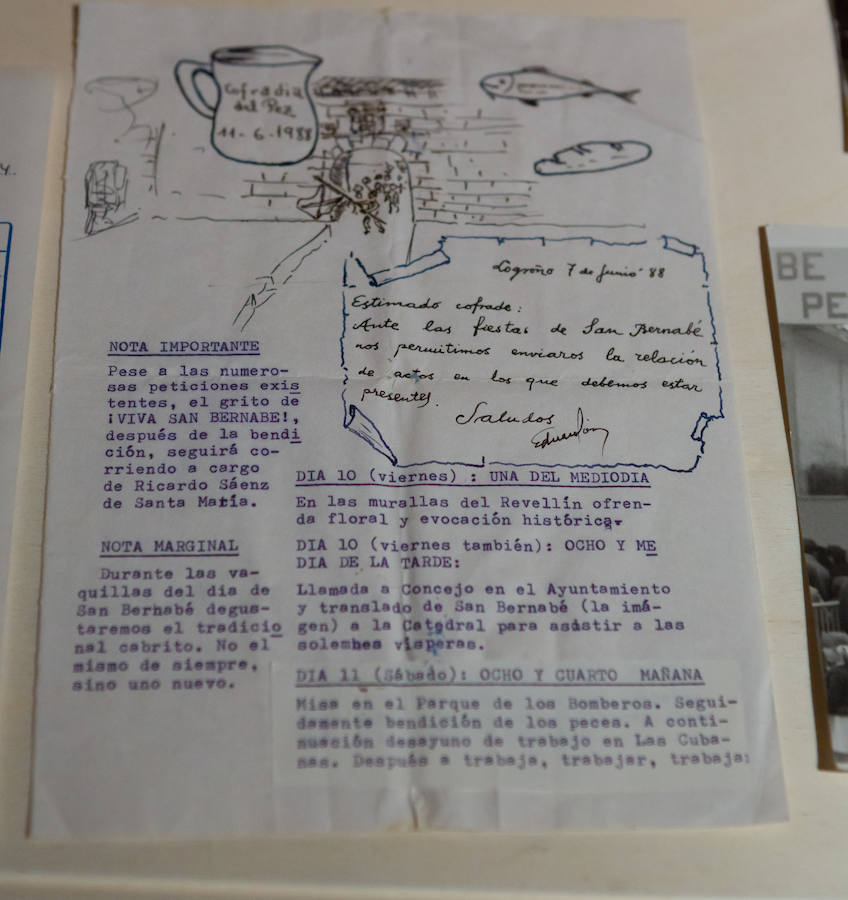 Cofradia
del Pez
11-6-1988
Logroño 7 de Junio '88
Estimado cofrade:
Ante las fiestas de San Bernabé
nos permitimos enviaros la relación
de actos en los que debemos estar
presentes.
Saludos
NOTA IMPORTANTE
Pese a las numero-
sas peticiones exis
tentes, el grito de
¡VIVA SAN BERNABE!,
después de la bendi
ción, seguirá co-
rriendo a cargo
de Ricardo Sáenz
de Santa María.
NOTA MARGINAL
Durante las va-
quillas del dia de
San Bernabé degus-
taremos el tradicio
nal cabrito. No el
mismo de siempre,
sino uno nuevo.
DIA 10 (viernes) : UNA DEL MEDIODIA
En las murallas del Revellín ofren-
da floral y evocación histórica.
DIA 10 (viernes también): OCHO Y ME
DIA DE LA TARDE:
Llamada a Concejo en el Ayuntamiento
y translado de San Bernabé (la imá-
gen) a la Catedral para asistir a las
solemnes vísperas.
DIA 11 (Sábado): OCHO Y CUARTO MAÑANA
Misa en el Parque de los Bomberos. Segui-
damente bendición de los peces. A conti-
nuación desayuno de trabajo en Las Cuba-
nas. Después a trabaja, trabajar, trabaja:
BE
PE